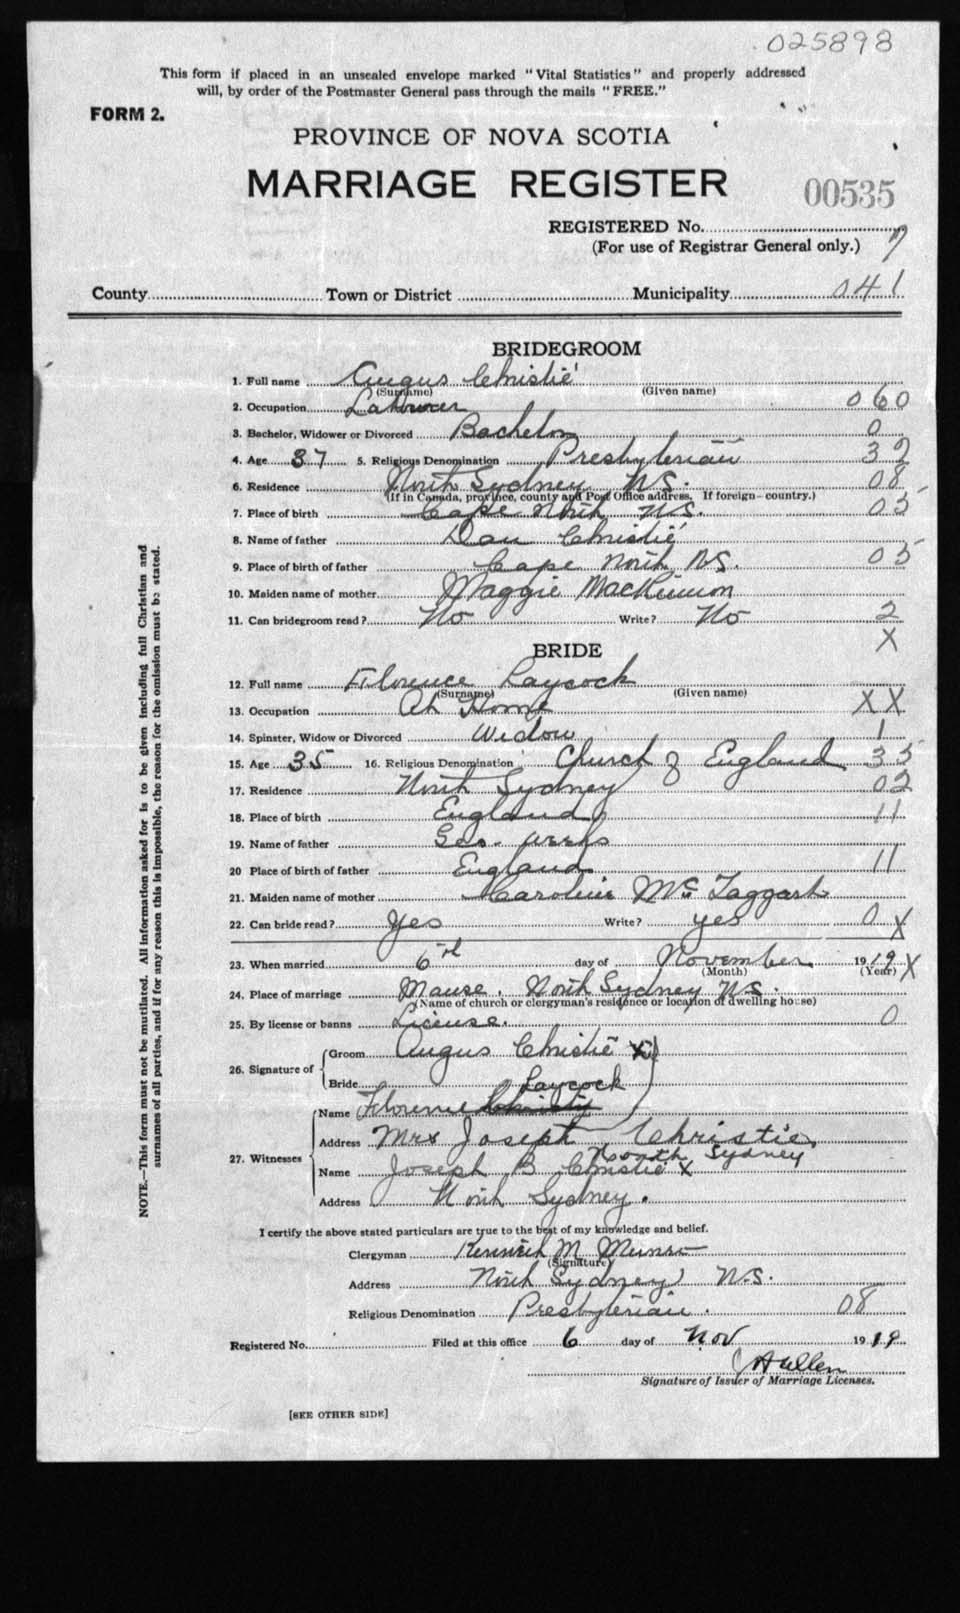 025898
This form if placed in an unsealed envelope marked "Vital Statistics" and properly addressed
will, by order of the Postmaster General pass through the mails "FREE."
FORM 2.
PROVINCE OF NOVA SCOTIA
MARRIAGE REGISTER 00535
REGISTERED No.
(For use of Registrar General only.) 7
County Town or District Municipality 041
BRIDEGROOM
1. Full name Angus Christie
(Surname) (Given name)
2. Occupation Labourer 060
3. Bachelor, Widower or Divorced Bachelor 0
4. Age 37 5. Religious Denomination Presbyterian 32
6. Residence North Sydney N.S. 08
(If in Canada, province, county and Post Office address. If foreign—country.)
7. Place of birth Cape North N.S. 05
8. Name of father Dan Christie
9. Place of birth of father Cape North N.S. 05
10. Maiden name of mother Maggie MacKinnon
11. Can bridegroom read? No Write? No 2
X
BRIDE
12. Full name Florence Laycock
(Surname) (Given name)
13. Occupation At Home XX
14. Spinster, Widow or Divorced Widow 1
15. Age 35 16. Religious Denomination Church of England 35
17. Residence North Sydney 02
18. Place of birth England 11
19. Name of father Geo.
20 Place of birth of father England 11
21. Maiden name of mother Caroline McTaggart
22. Can bride read? Yes Write? yes 0 X
23. When married 6th day of November 1919 X
(Month) (Year)
24. Place of marriage Manse. North Sydney N.S.
(Name of church or clergyman's residence or location of dwelling house)
25. By license or banns License. 0
26. Signature of
Groom Angus Christie X
Bride Laycock
Florence Christie
27. Witnesses
Name
Address Mrs Joseph Christie
North Sydney
Name Joseph B Christie X
Address North Sydney.
I certify the above stated particulars are true to the best of my knowledge and belief.
Clergyman Kenneth M Munro
(Signature)
Address North Sydney N.S.
Religious Denomination Presbyterian. 08
Registered No. Filed at this office 6 day of Nov 1919
Allen
Signature of Issuer of Marriage Licenses.
[SEE OTHER SIDE]
NOTE.—This form must not be mutilated. All information asked for is to be given including full Christian and
surnames of all parties, and if for any reason this is impossible, the reason for the omission must be stated.